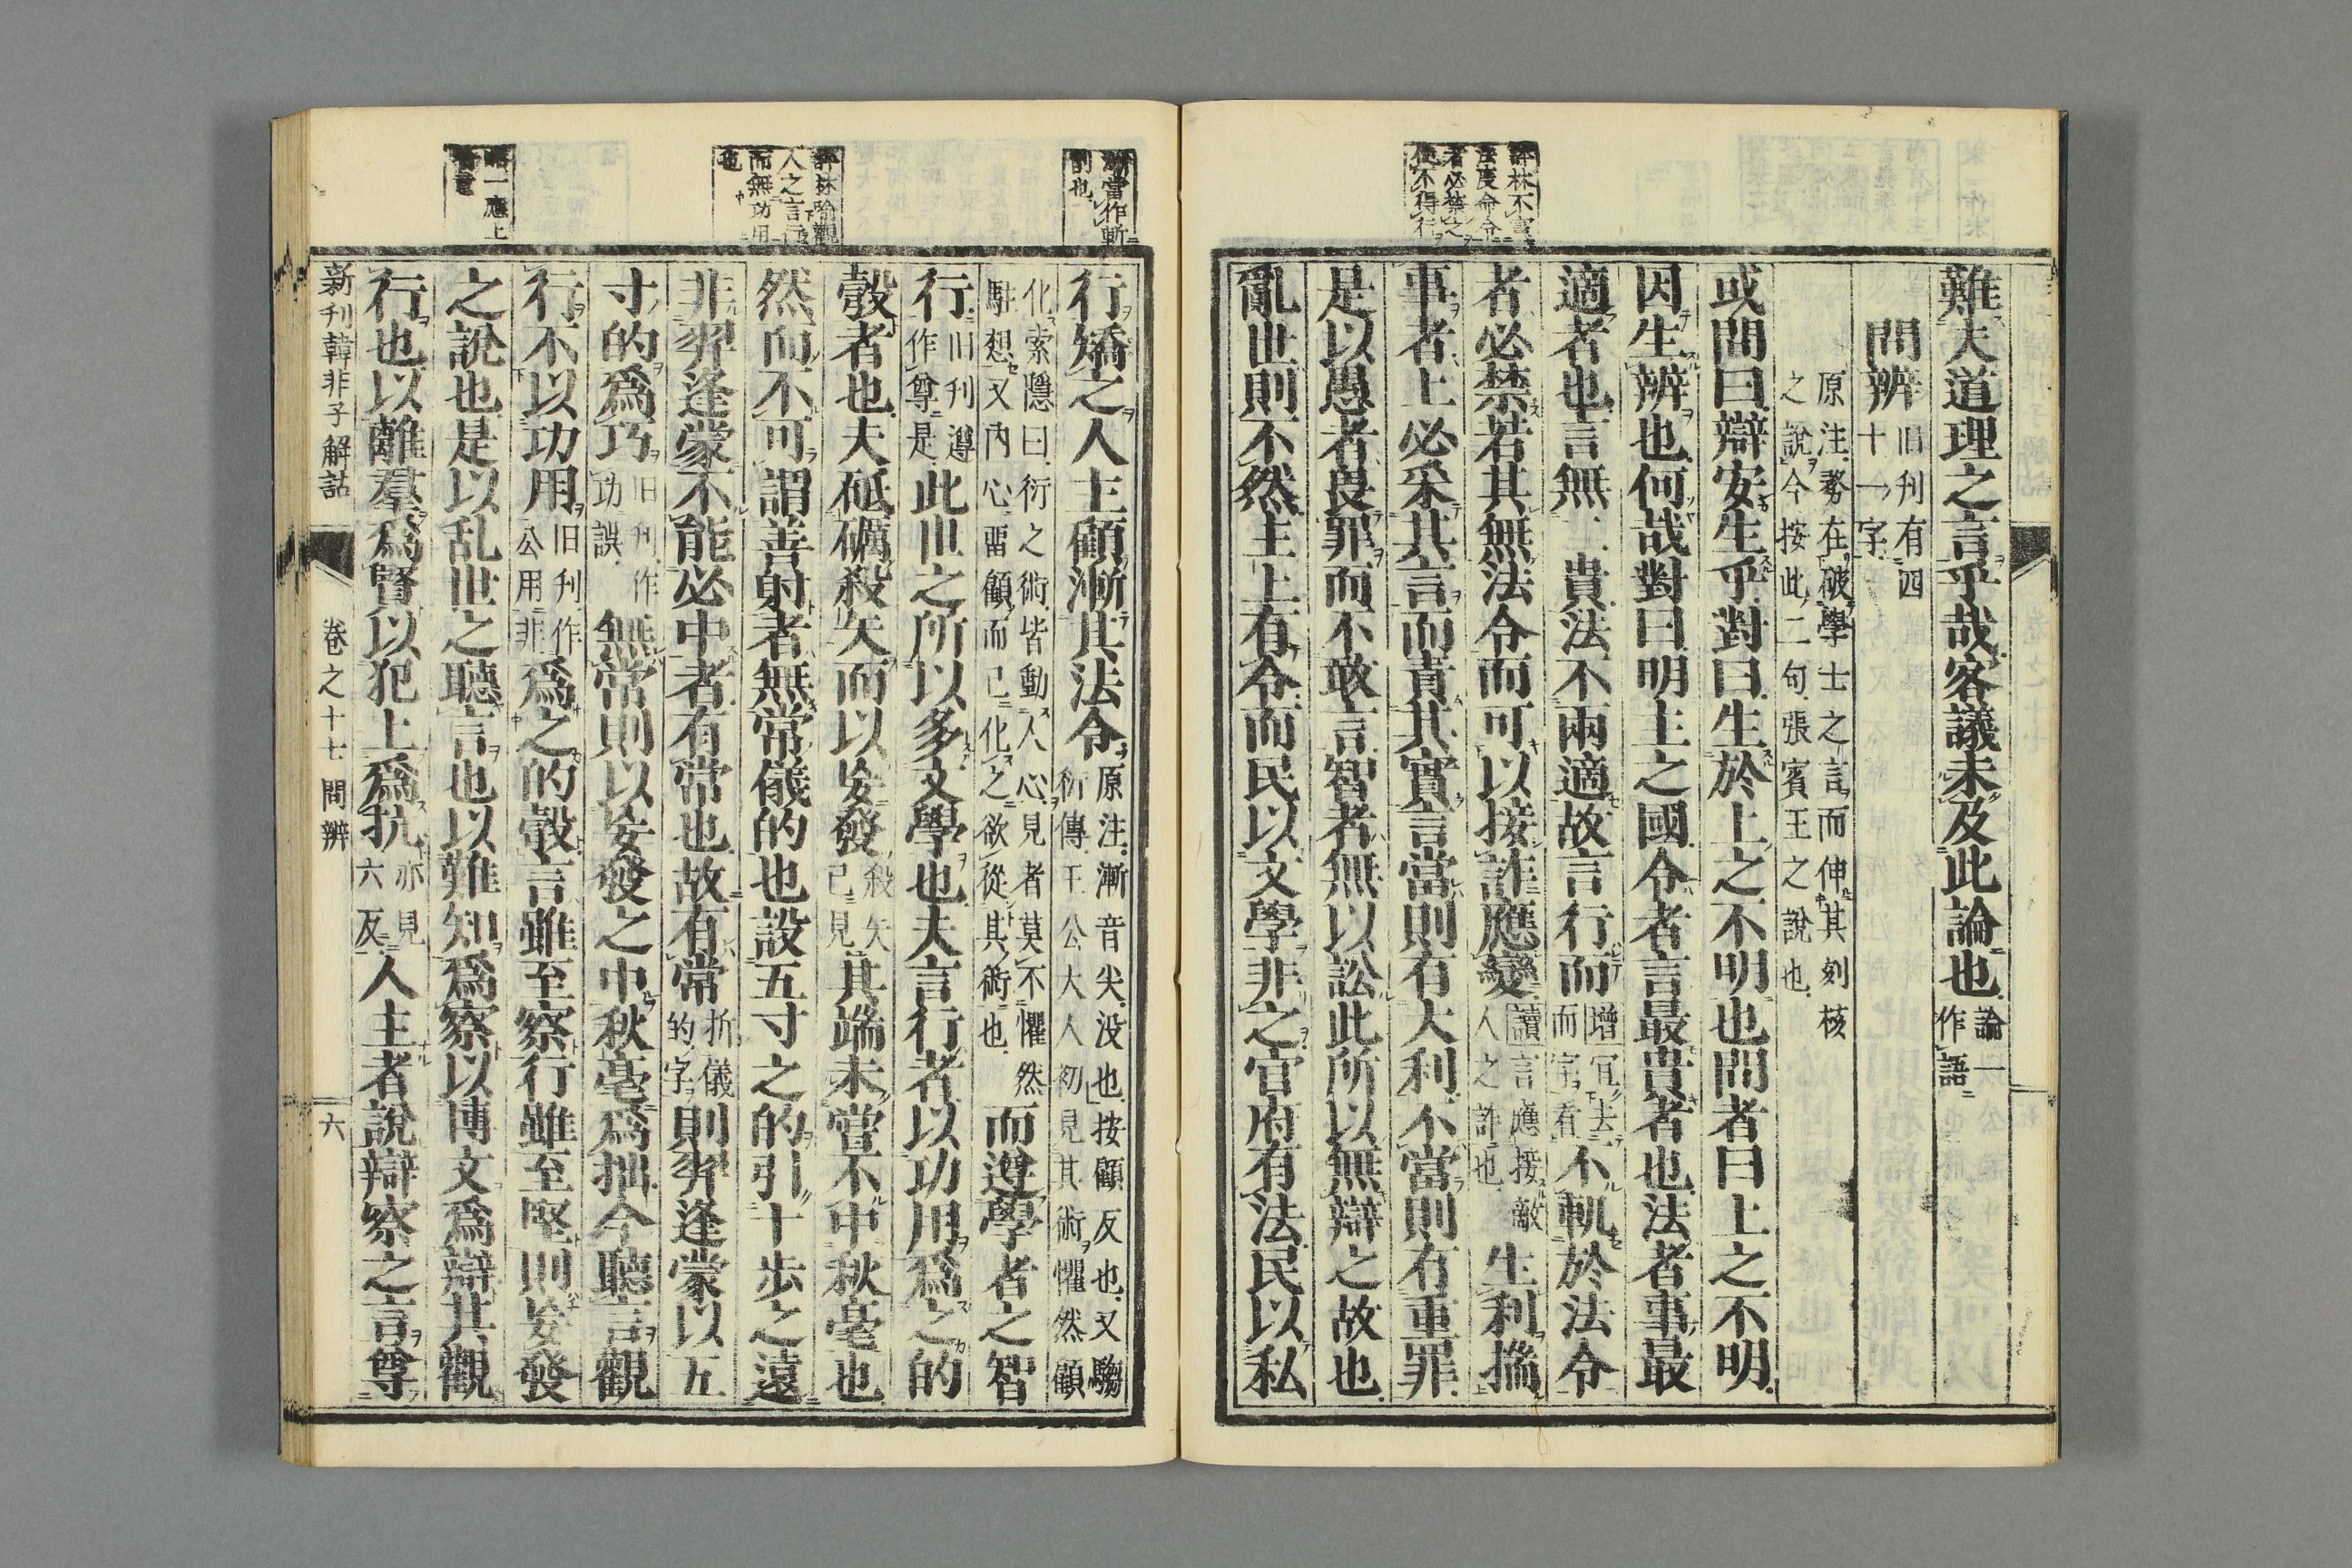 難夫道理之言乎哉客議未及此論也論一作語
問辨旧刊有四十一字
原注務在破學士之言而伸其刻核
之說今按此二句張賓王之說也
或問曰辯安生乎對曰生於上之不明也問者曰上之不明
因生辨也何哉對曰明主之國令者言最貴者也法者事最
適者也言無二貴法不兩適故言行而增冝去而字看不軌於法令
者必禁若其無法令而可以接詐應變讀言應接敵人之詐也生利揣
事者上必采其言而責其實言當則有大利不當則有重罪
是以愚者畏罪而不敢言智者無以訟此所以無辯之故也
亂世則不然主上有令而民以文學非之官府有法民以私
評林不寘
法度命令
者必禁之
使不得行
行矯之人主顧漸其法令原注漸音尖没也按顧反也又騶衍傳王公大人初見其術懼然顧
化索隱曰衍之術皆動人心見者莫不懼然
駐想又内心畱顧而已化之欲從其術也而遵學者之智
行旧刊遵作尊是此世之所以多文學也夫言行者以功用為之的
彀者也夫砥礪殺矢而以妄發殺矢已見其端未嘗不中秋毫也
然而不可謂善射者無常儀的也設五寸之的引十步之遠
非羿逢蒙不能必中者有常也故有常折儀的字則羿逢蒙以五
寸的爲巧旧刊作功誤無常則以妄發之中秋毫爲拙今聽言觀
行不以功用旧刊作公用非爲之的彀言雖至察行雖至堅則妄發
之說也是以乱世之聽言也以難知爲察以博文爲辯其觀
行也以離羣爲賢以犯上爲抗亦見六反人主者說辯察之言尊
漸當作斬
割也
評林喻觀
人之言行
而無功用
也
一應上
新刊韓非子解詁
卷之十七 問辨
六